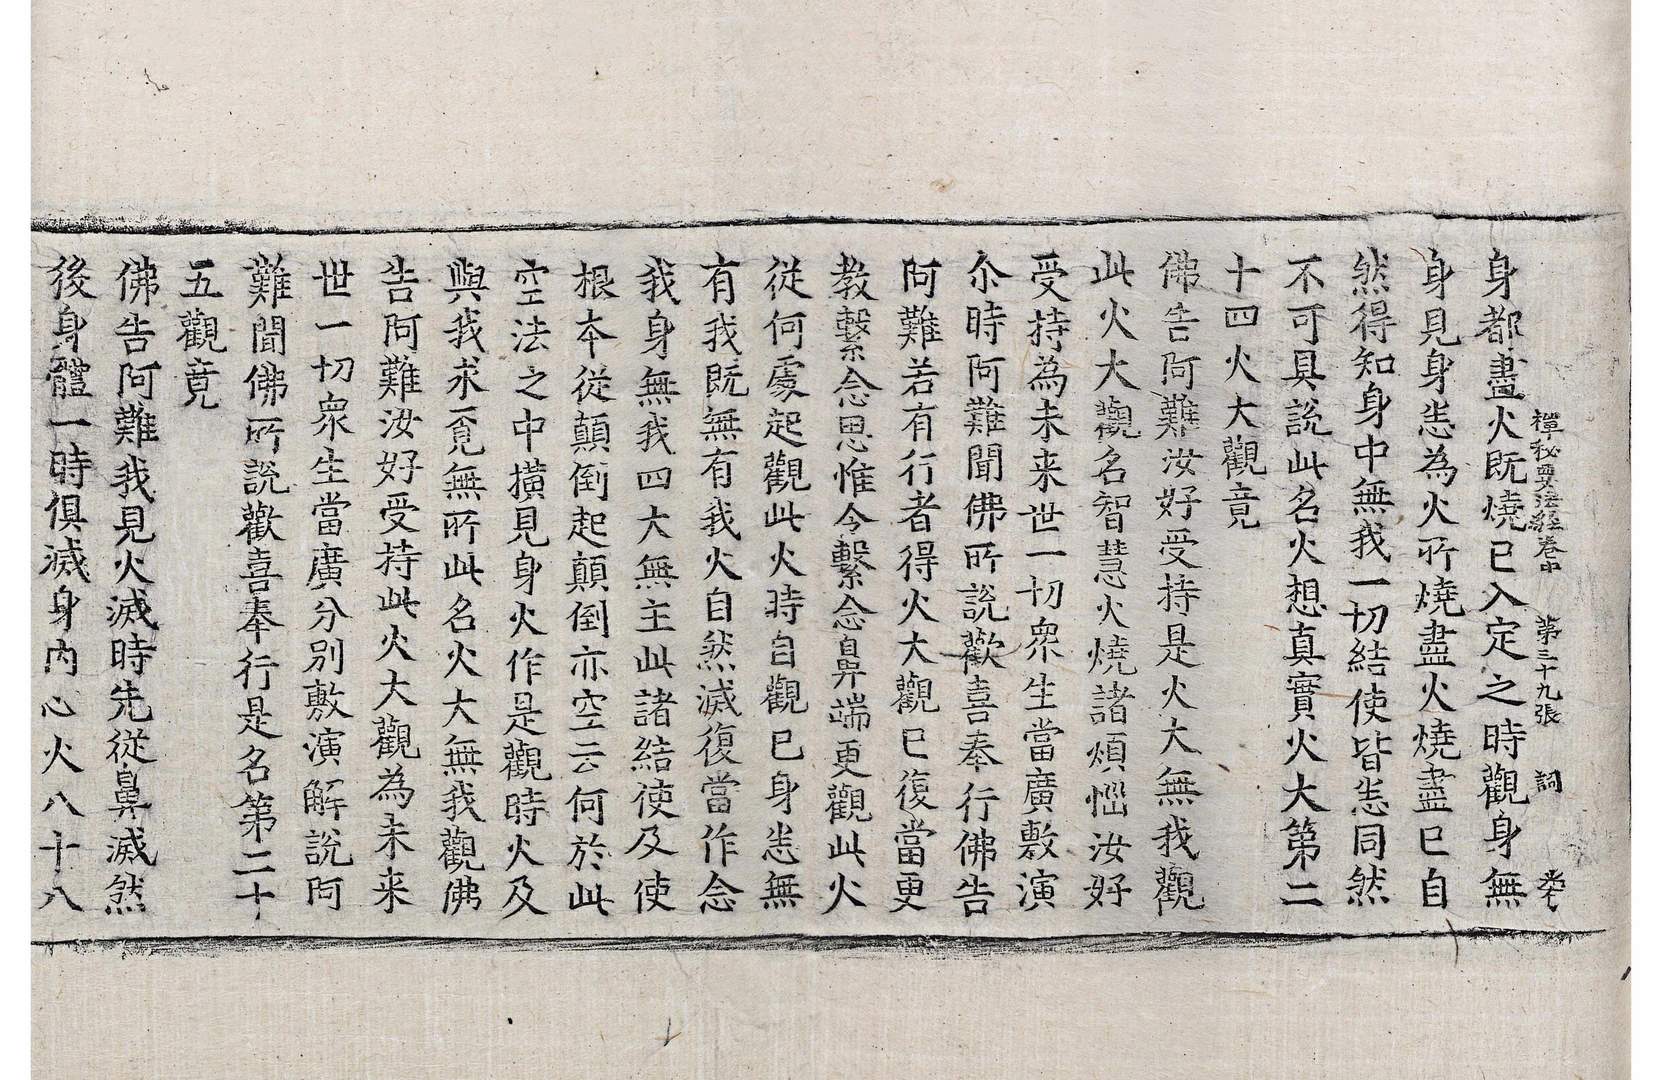 禪秘要法經卷中　第三十九張　詞
身都盡火既燒已入定之時觀身無
身見身恚為火所燒盡火燒盡已自
然得知身中無我一切結使皆悉同然
不可具說此名火想真實火大第二
十四火大觀竟
佛告阿難汝好受持是火大無我觀
此火大觀名智慧火燒諸煩惱汝好
受持為未来世一切衆生當廣敷演
尒時阿難聞佛所說歡喜奉行佛告
阿難若有行者得火大觀已復當更
教繫念思惟令繫念鼻端更觀此火
從何處起觀此火時自觀已身悉無
有我既無有我火自然滅復當作念
我身無我四大無主此諸結使及使
根本從顛倒起顛倒亦空云何於此
空法之中橫見身火作是觀時火及
與我求覓無所此名火大無我觀佛
告阿難汝好受持此火大觀為未来
世一切衆生當廣分別敷演解說阿
難聞佛所說歡喜奉行是名第二十
五觀竟
佛告阿難我見火滅時先從鼻滅然
後身體一時俱滅身內心火八十八